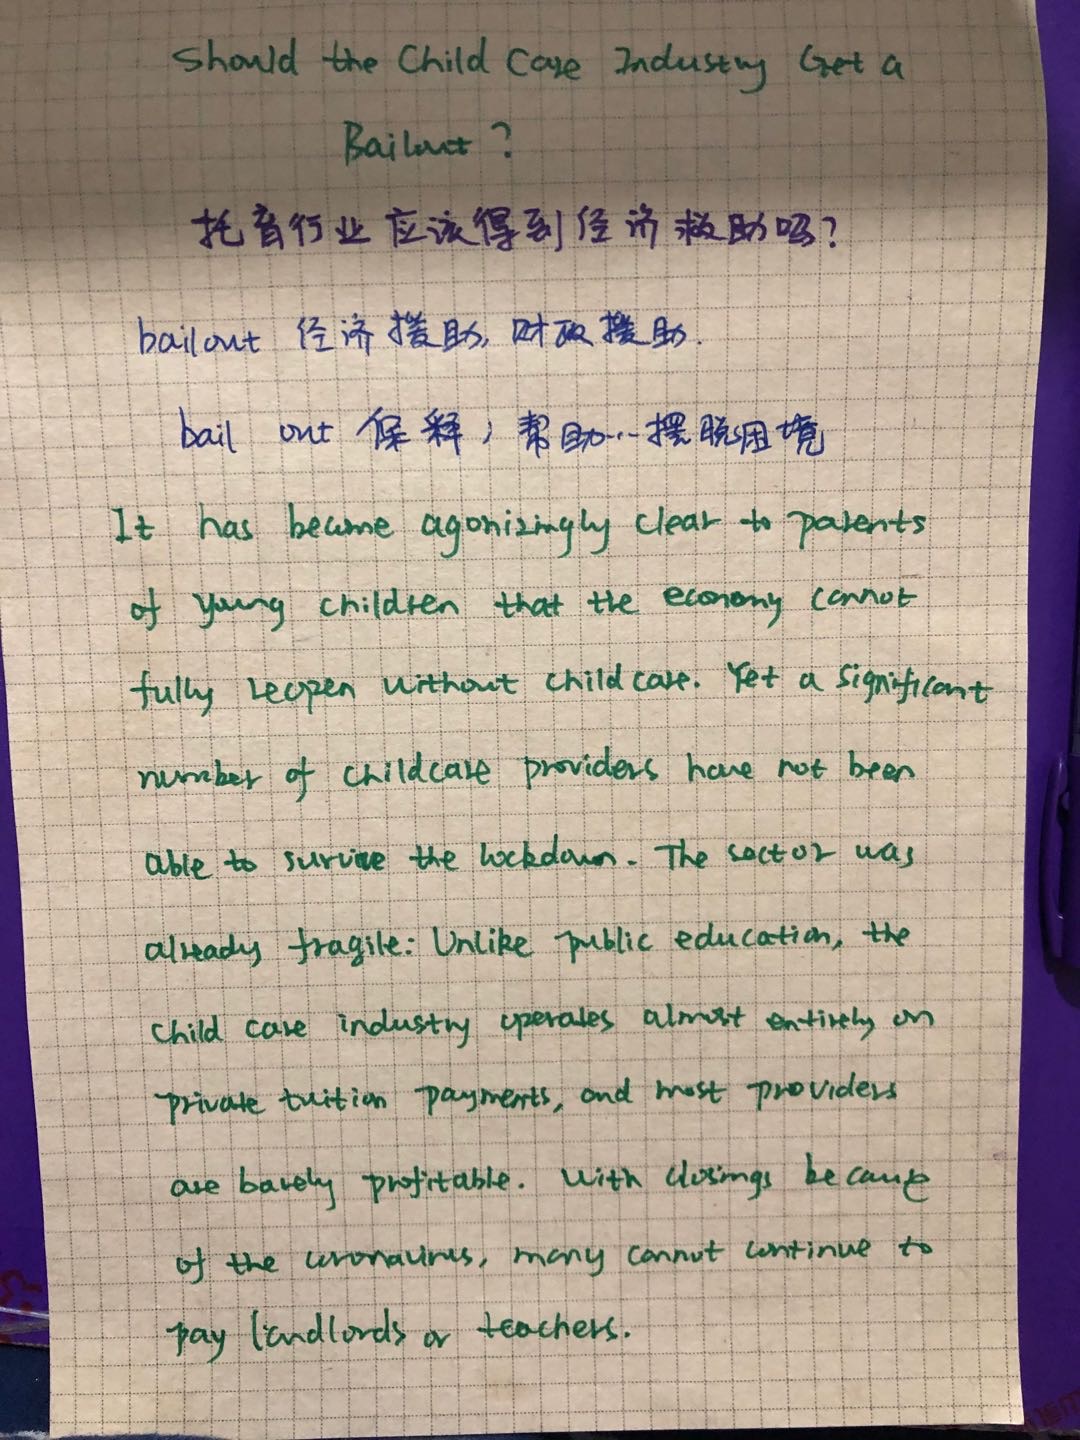 Should the Child Care Industry Get a
Bailout?
托育行业应该得到经济救助吗?
bailout 经济援助, 财政援助.
bail out 保释, 帮助...摆脱困境
It has become agonizingly clear to parents
of young children that the economy cannot
fully reopen without childcare. Yet a significant
number of childcare providers have not been
able to survive the lockdown. The sector was
already fragile: Unlike public education, the
child care industry operates almost entirely on
private tuition payments, and most providers
are barely profitable. With closings because
of the coronavirus, many cannot continue to
pay landlords or teachers.